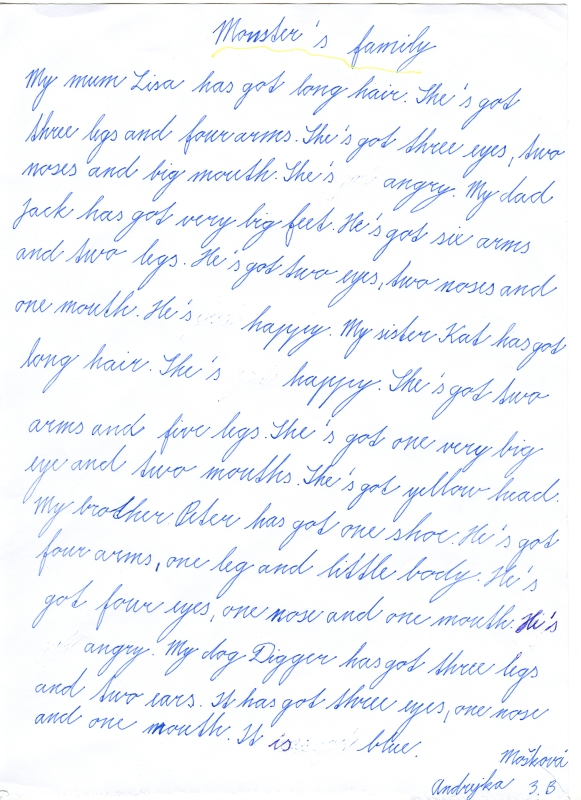 Monster's family
My mum Lisa has got long hair. She's got
three legs and four arms. She's got three eyes, two
noses and big mouth. She's angry. My dad
Jack has got very big feet. He's got six arms
and two legs. He's got two eyes, two noses and
one mouth. He's happy. My sister Kat has got
long hair. She's happy. She's got two
arms and five legs. She's got one very big
eye and two mouths. She's got yellow head.
My brother Peter has got one shoe. He's got
four arms, one leg and little body. He's
got four eyes, one nose and one mouth. He's
angry. My dog Digger has got three legs
and two ears. It has got three eyes, one nose
and one mouth. It is blue.
Mošková
Andrejka 3. B